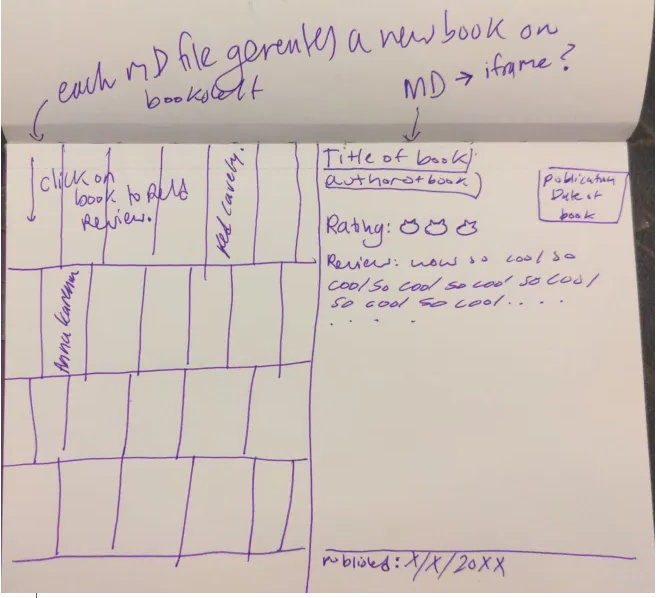 each MD file generates a new book on
bookshelf
MD → iframe?
click on
book to read
review.
Anna Karenina
Title of book
author of book
publication
Date of
book
Rating:
Review: wow so cool so
cool so cool so cool so cool
so cool so cool....
.....
published: X/X/20XX